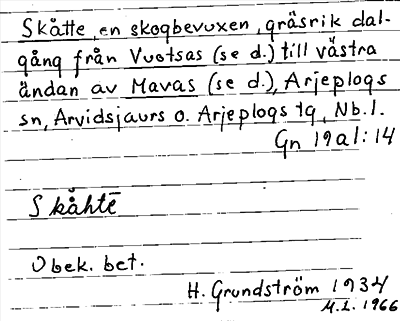 Skåtte, en skogbevuxen, gräsrik dal-
gång från Vuotsas (se d.) till västra
ändan av Mavas (se d.), Arjeplogs
sn, Arvidsjaurs o. Arjeplogs tg, Nb. l.
Gn 19a1:14
Skåhtē
Obek. bet.
H. Grundström 1934
M.L. 1966